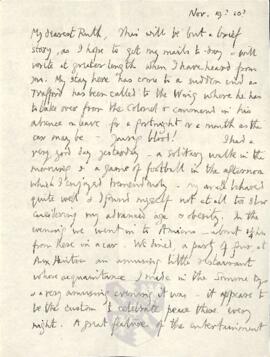 Nov. 19? 18?
My dearest Ruth, This will be but a brief
story, as I hope to get my mails to-day & will
write at greater length when I have heard from
you. My stay here has come to a sudden end as
Trafford has been called to the Wing where he has
to take over from the Colonel & command in his
absence on leave for a fortnight or a month as the
case may be - blood! I had a
very good day yesterday - a solitary walk in the
morning & a game of football in the afternoon
which I enjoyed tremendously - my an
quite well & I found myself not at all too slow
considering my advanced age & obesity. In the
evening we went in to Amiens - about
from here in a car. We dined a party of five at
an amusing little restaurant
whose acquaintance I made in the Somme days
& a very amusing evening it was - it appears to
be the custom to celebrate peace there every
night. A great feature of the entertainment